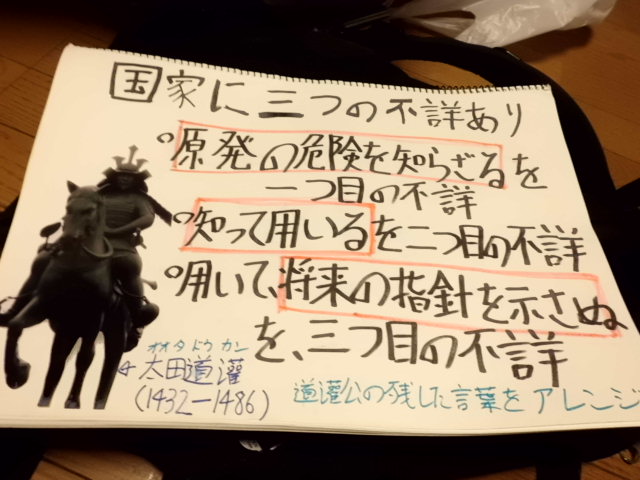 国家に三つの不詳あり
°原発の危険を知らざるを
一つ目の不詳
°知って用いるを二つ目の不詳
°用いて、将来の指針を示さぬ
を、三つ目の不詳
オオタドウカン
←太田道灌
(1432-1486)
道灌公の残した言葉をアレンジ